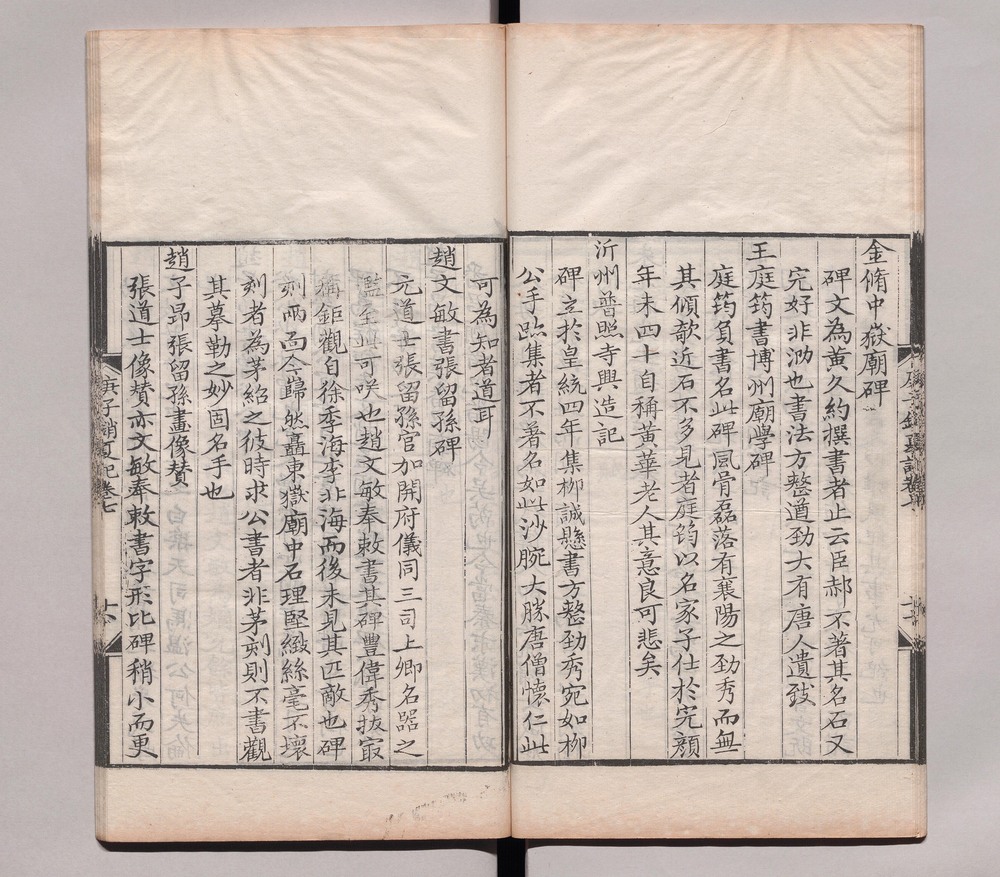 金脩中嶽廟碑
碑文為黃久約撰書者止云臣郝不著其名石又
完好非泐也書法方整遒勁大有唐人遺致
王庭筠書博州廟學碑
庭筠負書名此碑風骨磊落有襄陽之勁秀而無
其傾欹近石不多見者庭筠以名家子仕於完顏
年未四十自稱黃華老人其意良可悲矣
沂州普照寺興造記
碑立於皇統四年集柳誠懸書方整勁秀宛如柳
公手蹟集者不著名如此沙腕大勝唐僧懷仁此
可為知者道耳
趙文敏書張留孫碑
元道士張留孫官加開府儀同三司上卿名器之
濫至此可咲也趙文敏奉敕書其碑豐偉秀拔㝡
稱鉅觀自徐季海李北海而後未見其匹敵也碑
刻兩面今巋然矗東嶽廟中石理堅緻絲毫不壞
刻者為茅紹之彼時求公書者非茅刻則不書觀
其摹勒之妙固名手也
趙子昻張留孫畫像贊
張道士像贊亦文敏奉敕書字形比碑稍小而更
庚子銷夏記卷七